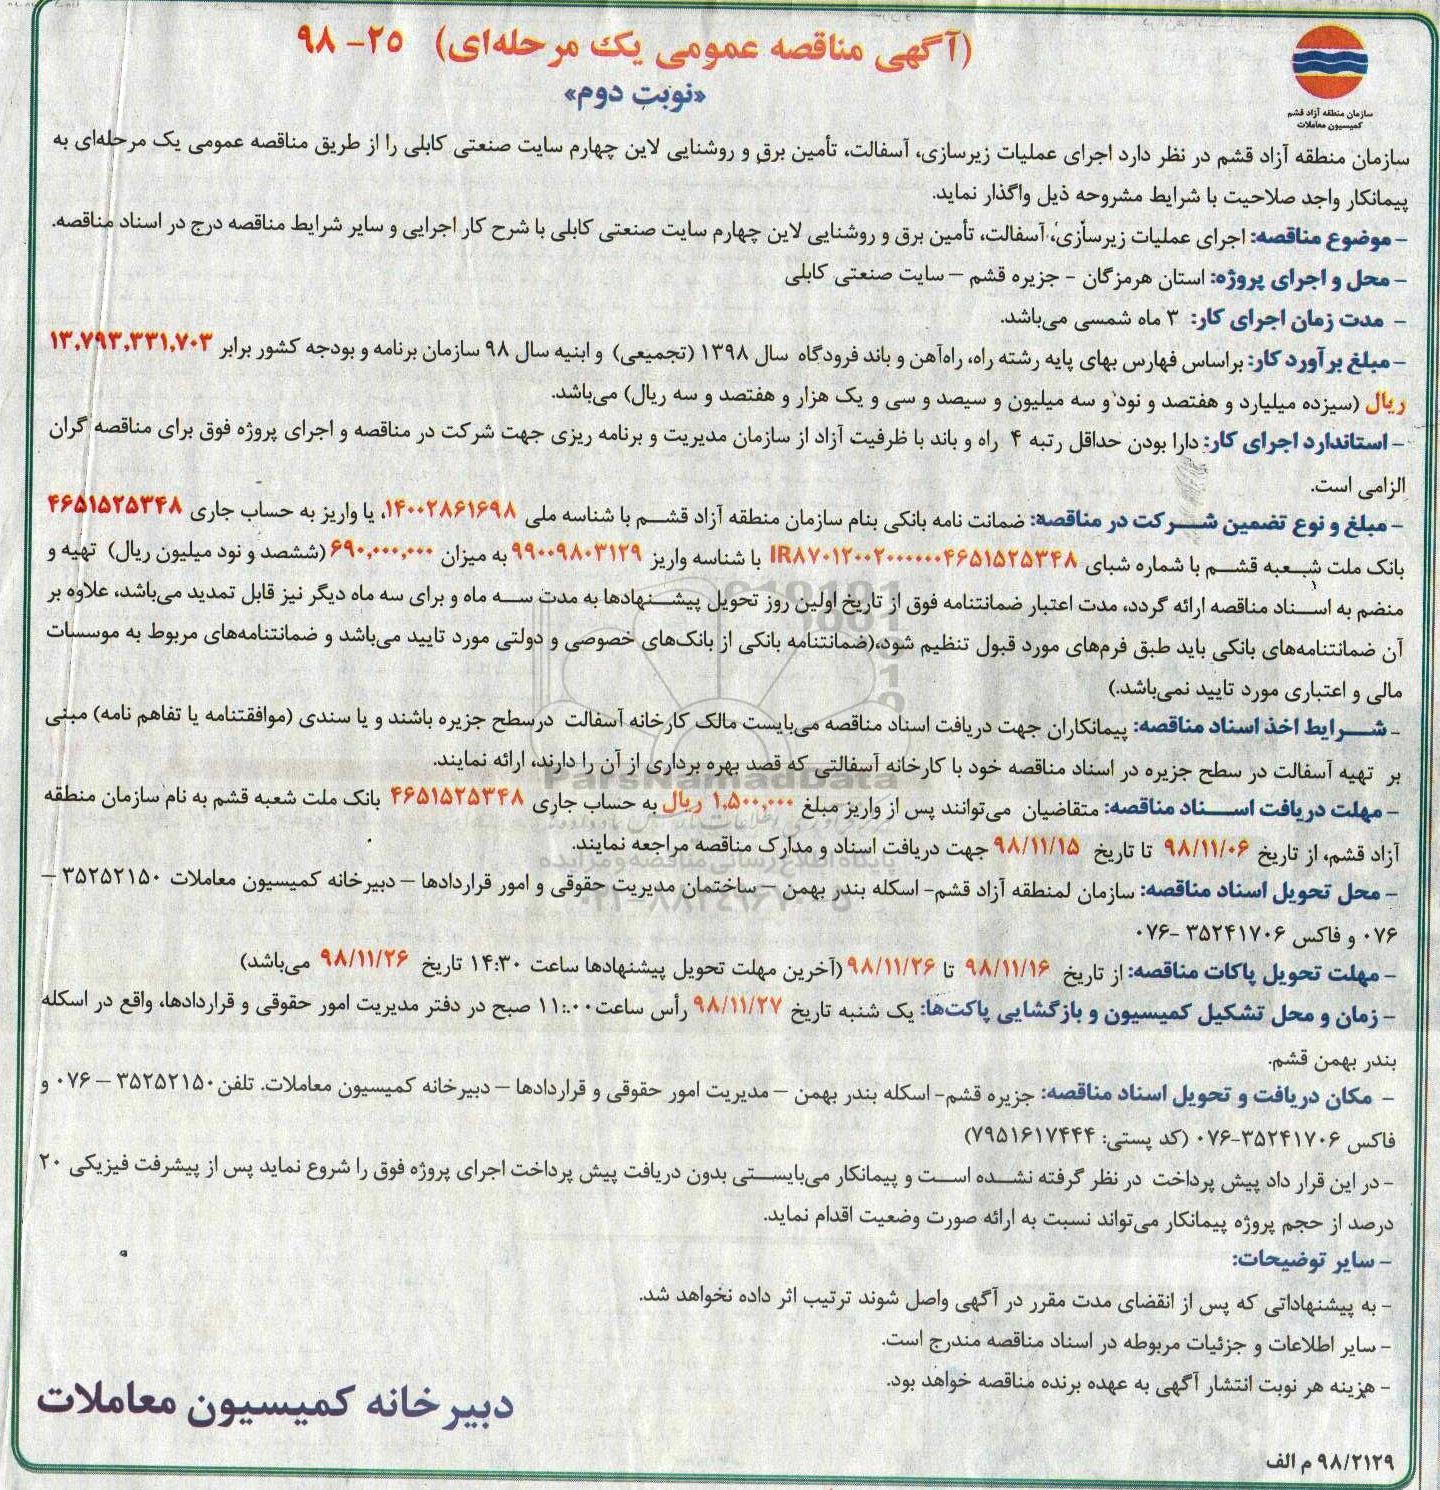 (آگهی مناقصه عمومی یک مرحله‌ای) ۲۵- ۹۸
«نوبت دوم»
سازمان منطقه آزاد قشم
کمیسیون معاملات
سازمان منطقه آزاد قشم در نظر دارد اجرای عملیات زیرسازی، آسفالت، تأمین برق و روشنایی لاین چهارم سایت صنعتی کابلی را از طریق مناقصه عمومی یک مرحله‌ای به
پیمانکار واجد صلاحیت با شرایط مشروحه ذیل واگذار نماید.
- موضوع مناقصه: اجرای عملیات زیرسازی، آسفالت، تأمین برق و روشنایی لاین چهارم سایت صنعتی کابلی با شرح کار اجرایی و سایر شرایط مناقصه درج در اسناد مناقصه.
- محل و اجرای پروژه: استان هرمزگان - جزیره قشم – سایت صنعتی کابلی
- مدت زمان اجرای کار: ۳ ماه شمسی می‌باشد.
- مبلغ برآورد کار: براساس فهارس بهای پایه رشته راه، راه‌آهن و باند فرودگاه سال ۱۳۹۸ (تجمیعی) و ابنیه سال ۹۸ سازمان برنامه و بودجه کشور برابر ۱۳,۷۹۳,۳۳۱,۷۰۳
ریال (سیزده میلیارد و هفتصد و نود و سه میلیون و سیصد و سی و یک هزار و هفتصد و سه ریال) می‌باشد.
- استاندارد اجرای کار: دارا بودن حداقل رتبه ۴ راه و باند با ظرفیت آزاد از سازمان مدیریت و برنامه ریزی جهت شرکت در مناقصه و اجرای پروژه فوق برای مناقصه گران
الزامی است.
- مبلغ و نوع تضمین شرکت در مناقصه: ضمانت نامه بانکی بنام سازمان منطقه آزاد قشم با شناسه ملی ۱۴۰۰۲۸۶۱۶۹۸، یا واریز به حساب جاری ۴۶۵۱۵۲۵۳۴۸
بانک ملت شعبه قشم با شماره شبای IR۸۷۰۱۲۰۰۲۰۰۰۰۰۰۴۶۵۱۵۲۵۳۴۸ با شناسه واریز ۹۹۰۰۹۸۰۳۱۲۹ به میزان ۶۹۰,۰۰۰,۰۰۰ (ششصد و نود میلیون ریال) تهیه و
منضم به اسناد مناقصه ارائه گردد، مدت اعتبار ضمانتنامه فوق از تاریخ اولین روز تحویل پیشنهادها به مدت سه ماه و برای سه ماه دیگر نیز قابل تمدید می‌باشد، علاوه بر
آن ضمانتنامه‌های بانکی باید طبق فرم‌های مورد قبول تنظیم شود،(ضمانتنامه بانکی از بانک‌های خصوصی و دولتی مورد تایید می‌باشد و ضمانتنامه‌های مربوط به موسسات
مالی و اعتباری مورد تایید نمی‌باشد.)
- شرایط اخذ اسناد مناقصه: پیمانکاران جهت دریافت اسناد مناقصه می‌بایست مالک کارخانه آسفالت درسطح جزیره باشند و یا سندی (موافقتنامه یا تفاهم نامه) مبنی
بر تهیه آسفالت در سطح جزیره در اسناد مناقصه خود با کارخانه آسفالتی که قصد بهره برداری از آن را دارند، ارائه نمایند.
- مهلت دریافت اسناد مناقصه: متقاضیان می‌توانند پس از واریز مبلغ ۱,۵۰۰,۰۰۰ ریال به حساب جاری ۴۶۵۱۵۲۵۳۴۸ بانک ملت شعبه قشم به نام سازمان منطقه
آزاد قشم، از تاریخ ۹۸/۱۱/۰۶ تا تاریخ ۹۸/۱۱/۱۵ جهت دریافت اسناد و مدارک مناقصه مراجعه نمایند.
- محل تحویل اسناد مناقصه: سازمان لمنطقه آزاد قشم- اسکله بندر بهمن – ساختمان مدیریت حقوقی و امور قراردادها – دبیرخانه کمیسیون معاملات ۳۵۲۵۲۱۵۰ –
۰۷۶ و فاکس ۳۵۲۴۱۷۰۶ -۰۷۶
- مهلت تحویل پاکات مناقصه: از تاریخ ۹۸/۱۱/۱۶ تا ۹۸/۱۱/۲۶ (آخرین مهلت تحویل پیشنهادها ساعت ۱۴:۳۰ تاریخ ۹۸/۱۱/۲۶ می‌باشد)
- زمان و محل تشکیل کمیسیون و بازگشایی پاکت‌ها: یک شنبه تاریخ ۹۸/۱۱/۲۷ رأس ساعت ۱۱:۰۰ صبح در دفتر مدیریت امور حقوقی و قراردادها، واقع در اسکله
بندر بهمن قشم.
- مکان دریافت و تحویل اسناد مناقصه: جزیره قشم- اسکله بندر بهمن – مدیریت امور حقوقی و قراردادها – دبیرخانه کمیسیون معاملات. تلفن ۳۵۲۵۲۱۵۰ – ۰۷۶ و
فاکس ۳۵۲۴۱۷۰۶-۰۷۶ (کد پستی: ۷۹۵۱۶۱۷۴۴۴)
- در این قرار داد پیش پرداخت در نظر گرفته نشده است و پیمانکار می‌بایستی بدون دریافت پیش پرداخت اجرای پروژه فوق را شروع نماید پس از پیشرفت فیزیکی ۲۰
درصد از حجم پروژه پیمانکار می‌تواند نسبت به ارائه صورت وضعیت اقدام نماید.
- سایر توضیحات:
- به پیشنهاداتی که پس از انقضای مدت مقرر در آگهی واصل شوند ترتیب اثر داده نخواهد شد.
- سایر اطلاعات و جزئیات مربوطه در اسناد مناقصه مندرج است.
- هزینه هر نوبت انتشار آگهی به عهده برنده مناقصه خواهد بود.
دبیرخانه کمیسیون معاملات
۹۸/۲۱۲۹ م الف
ParsNamadData
پایگاه اطلاع رسانی مناقصه و مزایده